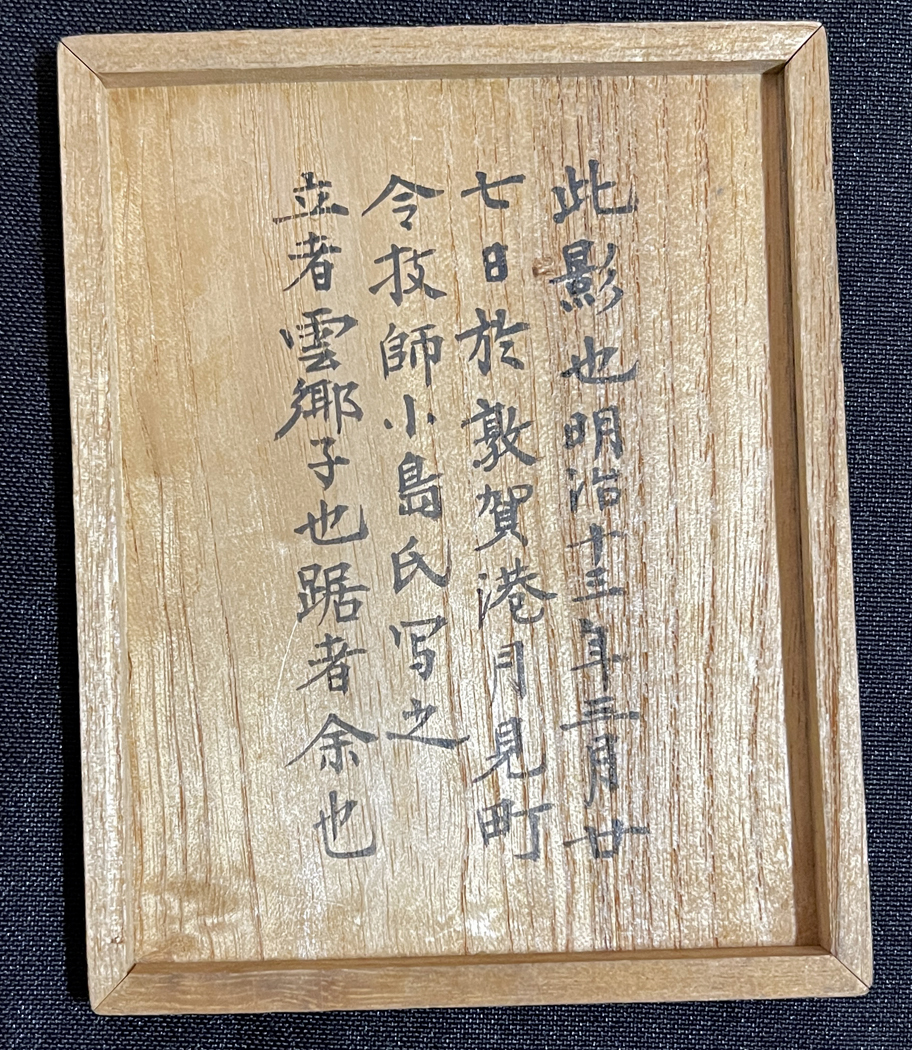 此影也明治十三年三月廿
七日於敦賀港月見町
令技師小島氏写之
立者雲梛子也踞者余也